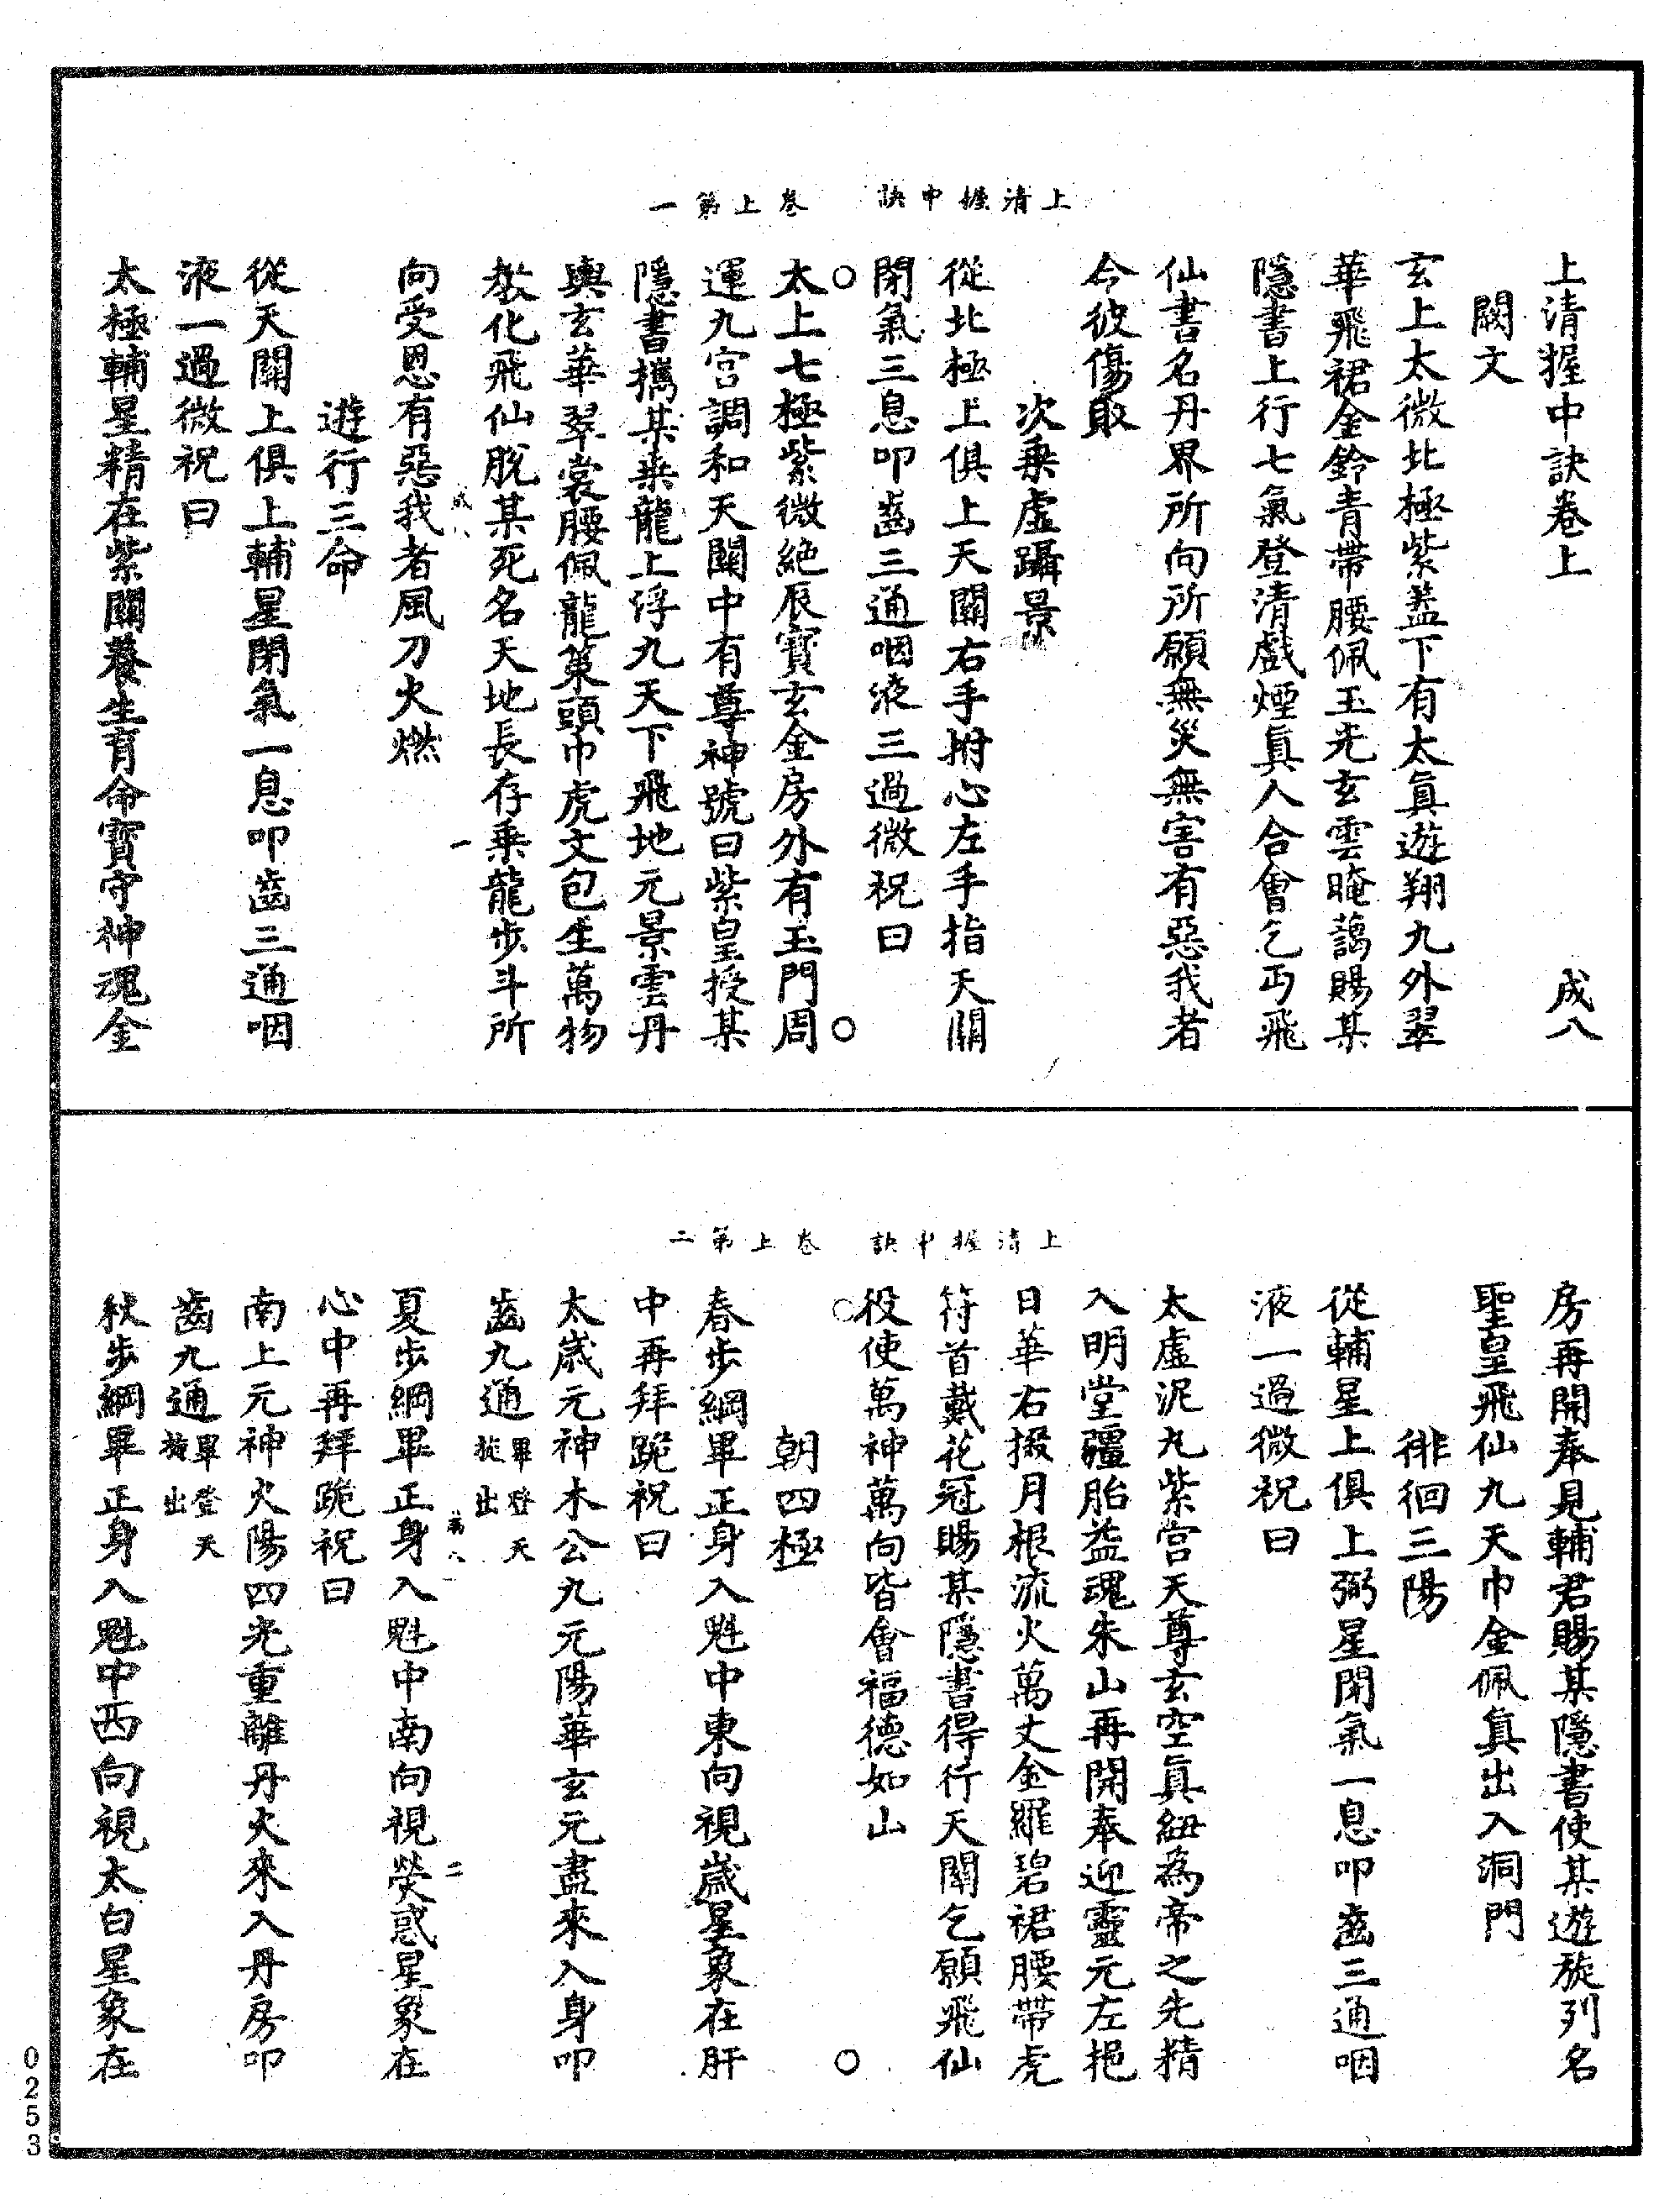 上清握中訣 卷上第一
上清握中訣卷上 成八
闕文
玄上太微北極紫蓋下有太真遊翔九外翠
華飛裙金鈴青帶腰佩玉光玄雲晻藹賜某
隱書上行七氣登清戲煙真人合會乞丐飛
仙書名丹界所向所願無災無害有惡我者
令彼傷敗
次乘虛躡景
從北極上俱上天關右手拊心左手指天關
閉氣三息叩齒三通咽液三過微祝曰
太上七極紫微絕辰寶玄金房外有玉門周
運九宮調和天關中有尊神號曰紫皇授某
隱書攜某乘龍上浮九天下飛地元景雲丹
輿玄華翠裳腰佩龍策頭巾虎文包生萬物
教化飛仙脫某死名天地長存乘龍步斗所
成八 一
向受恩有惡我者風刀火燃
遊行三命
從天關上俱上輔星閉氣一息叩齒三通咽
液一過微祝曰
太極輔星精在紫關養生育命寶守神魂金
上清握中訣 卷上第二
房再開奉見輔君賜某隱書使某遊旋列名
聖皇飛仙九天巾金佩真出入洞門
徘徊三陽
從輔星上俱上弼星閉氣一息叩齒三通咽
液一過微祝曰
太虛泥丸紫宮天尊玄空真紐為帝之先精
入明堂疆胎益魂朱山再開奉迎靈元左挹
日華右掇月根流火萬丈金羅碧裙腰帶虎
符首戴花冠賜某隱書得行天關乞願飛仙
役使萬神萬向皆會福德如山
朝四極
春步綱畢正身入魁中東向視歲星象在肝
中再拜跪祝曰
太歲元神木公九元陽華玄元盡來入身叩
齒九通畢登天旋出
夏步綱畢正身入魁中南向視熒惑星象在
二
心中再拜跪祝曰
南上元神火陽四光重離丹火來入丹房叩
齒九通畢登天旋出
秋步綱畢正身入魁中西向視太白星象在
0253